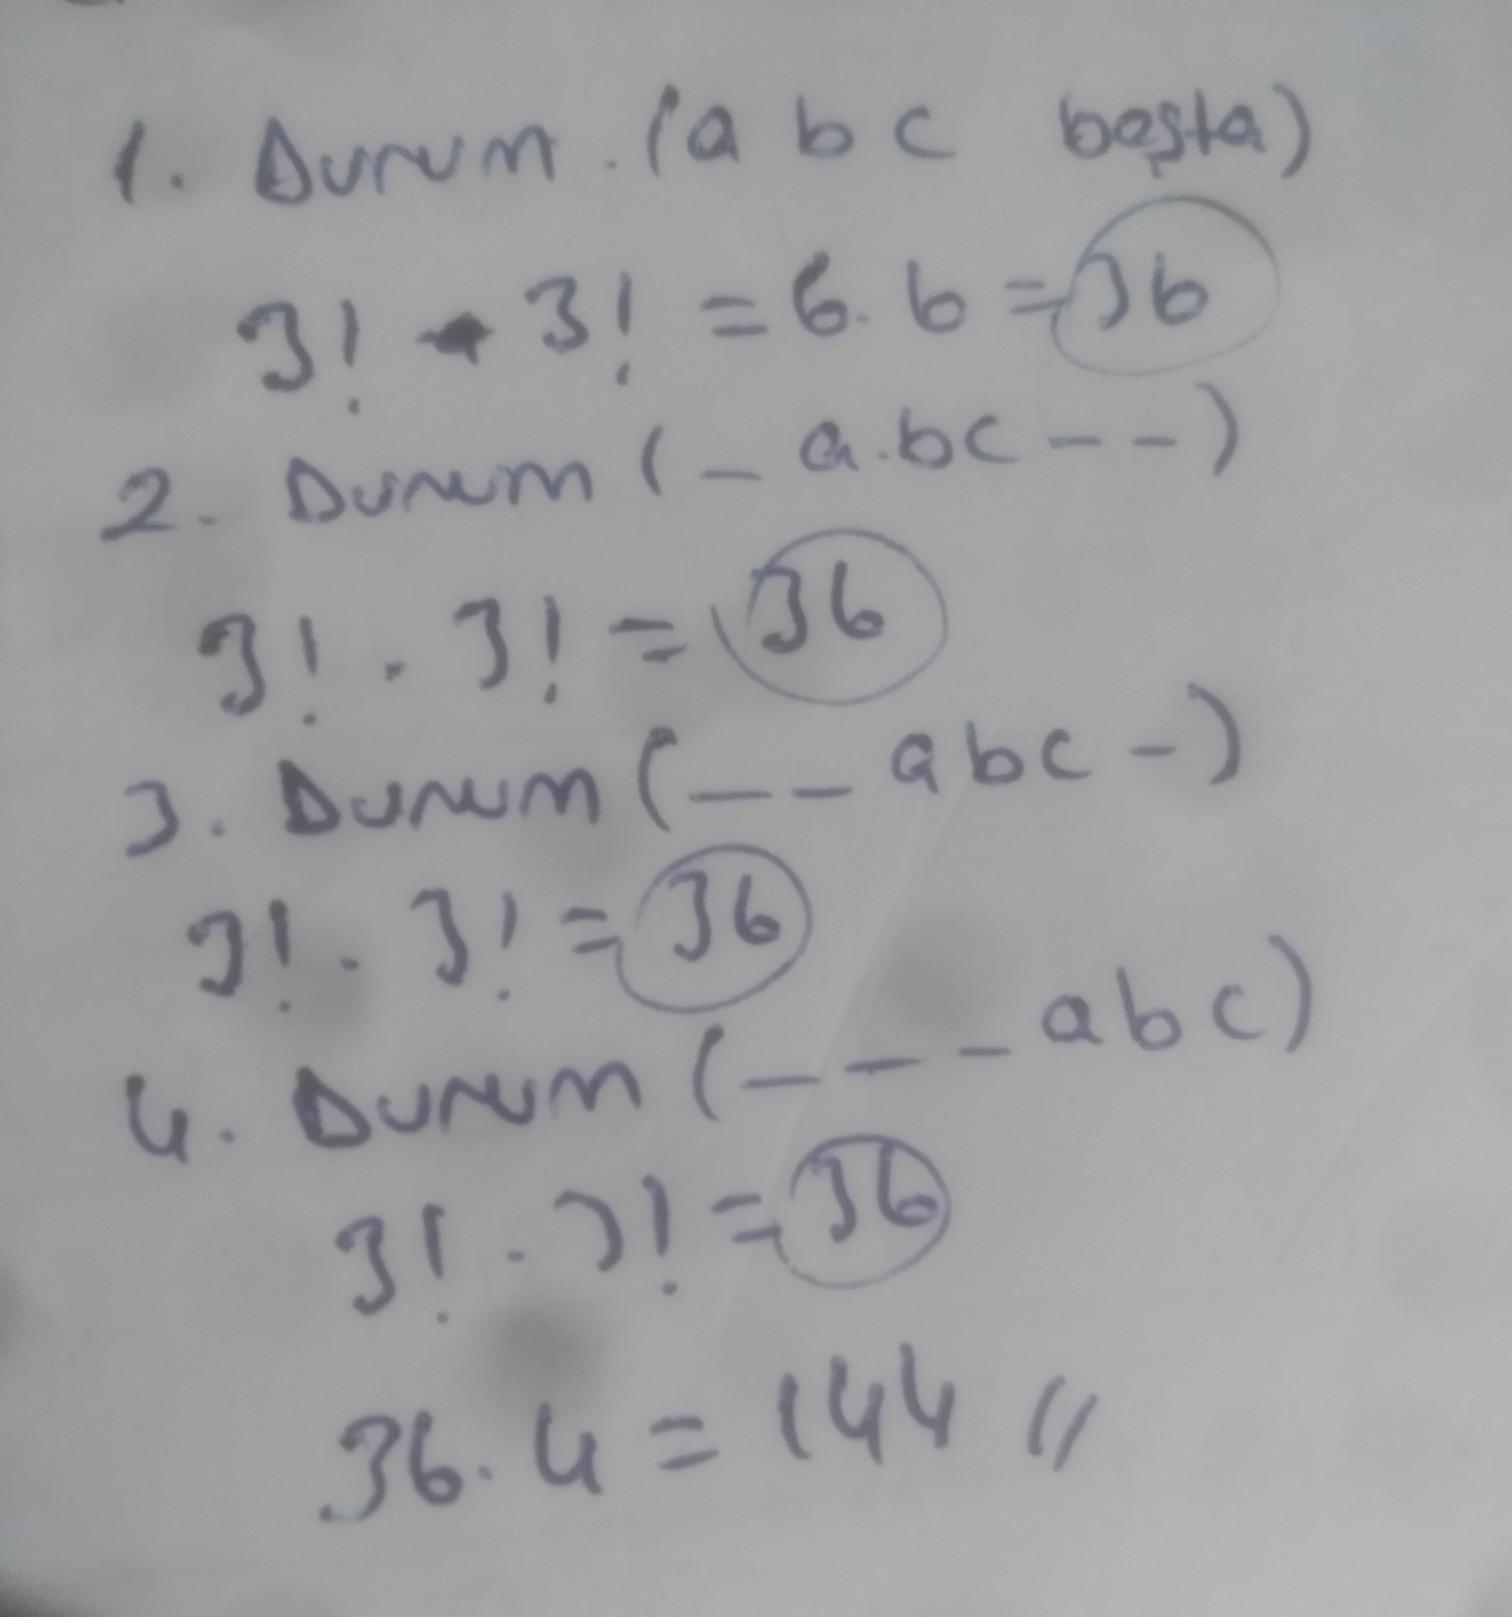 1. Durum. (a b c başta)
3! . 3! = 6. 6 = 36
2. Durum ( _ a.bc - - )
3! . 3! = 36
3. Durum ( _ _ abc - )
3! . 3! = 36
4. Durum ( _ _ _ abc)
3! . 3! = 36
36. 4 = 144 //